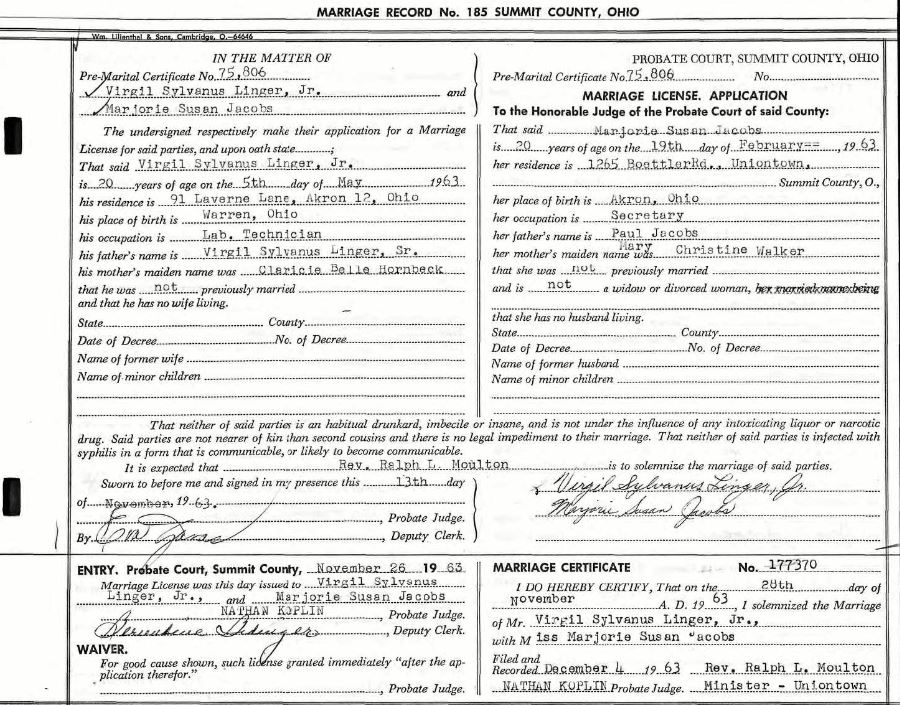 MARRIAGE RECORD No. 185 SUMMIT COUNTY, OHIO
Wm. Lilienthal & Sons, Cambridge, O.—64646
IN THE MATTER OF
Pre-Marital Certificate No. 75,806
Virgil Sylvanus Linger, Jr. and
Marjorie Susan Jacobs
The undersigned respectively make their application for a Marriage
License for said parties, and upon oath state
That said Virgil Sylvanus Linger, Jr.
is 20 years of age on the 5th day of May 1963
his residence is 91 Laverne Lane, Akron 12, Ohio
his place of birth is Warren, Ohio
his occupation is Lab. Technician
his father's name is Virgil Sylvanus Linger, Sr.
his mother's maiden name was Claricie Belle Hornbeck
that he was not previously married
and that he has no wife living.
State County
Date of Decree No. of Decree
Name of former wife
Name of minor children
PROBATE COURT, SUMMIT COUNTY, OHIO
Pre-Marital Certificate No. 75,806 No.
MARRIAGE LICENSE. APPLICATION
To the Honorable Judge of the Probate Court of said County:
That said Marjorie Susan Jacobs
is 20 years of age on the 19th day of February==, 1963
her residence is 1265 BoettlerRd., Uniontown,
Summit County, O.,
her place of birth is Akron, Ohio
her occupation is Secretary
her father's name is Paul Jacobs
her mother's maiden name was Mary Christine Walker
that she was not previously married
and is not a widow or divorced woman, her married name being
that she has no husband living.
State County
Date of Decree No. of Decree
Name of former husband
Name of minor children
That neither of said parties is an habitual drunkard, imbecile or insane, and is not under the influence of any intoxicating liquor or narcotic
drug. Said parties are not nearer of kin than second cousins and there is no legal impediment to their marriage. That neither of said parties is infected with
syphilis in a form that is communicable, or likely to become communicable.
It is expected that Rev. Ralph L. Moulton is to solemnize the marriage of said parties.
Sworn to before me and signed in my presence this 13th day
of November, 1963.
, Probate Judge.
By Eva , Deputy Clerk.
Virgil Sylvanus Linger, Jr.
Marjorie Susan Jacobs
ENTRY. Probate Court, Summit County, November 26 1963
Marriage License was this day issued to Virgil Sylvanus
Linger, Jr., and Marjorie Susan Jacobs
NATHAN KOPLIN , Probate Judge.
, Deputy Clerk.
WAIVER.
For good cause shown, such license granted immediately "after the ap-
plication therefor."
, Probate Judge.
MARRIAGE CERTIFICATE No. 177370
I DO HEREBY CERTIFY, That on the 28th day of
November A. D. 1963, I solemnized the Marriage
of Mr. Virgil Sylvanus Linger, Jr.,
with Miss Marjorie Susan Jacobs
Filed and
Recorded December 4 1963 Rev. Ralph L. Moulton
NATHAN KOPLIN Probate Judge. Minister - Uniontown